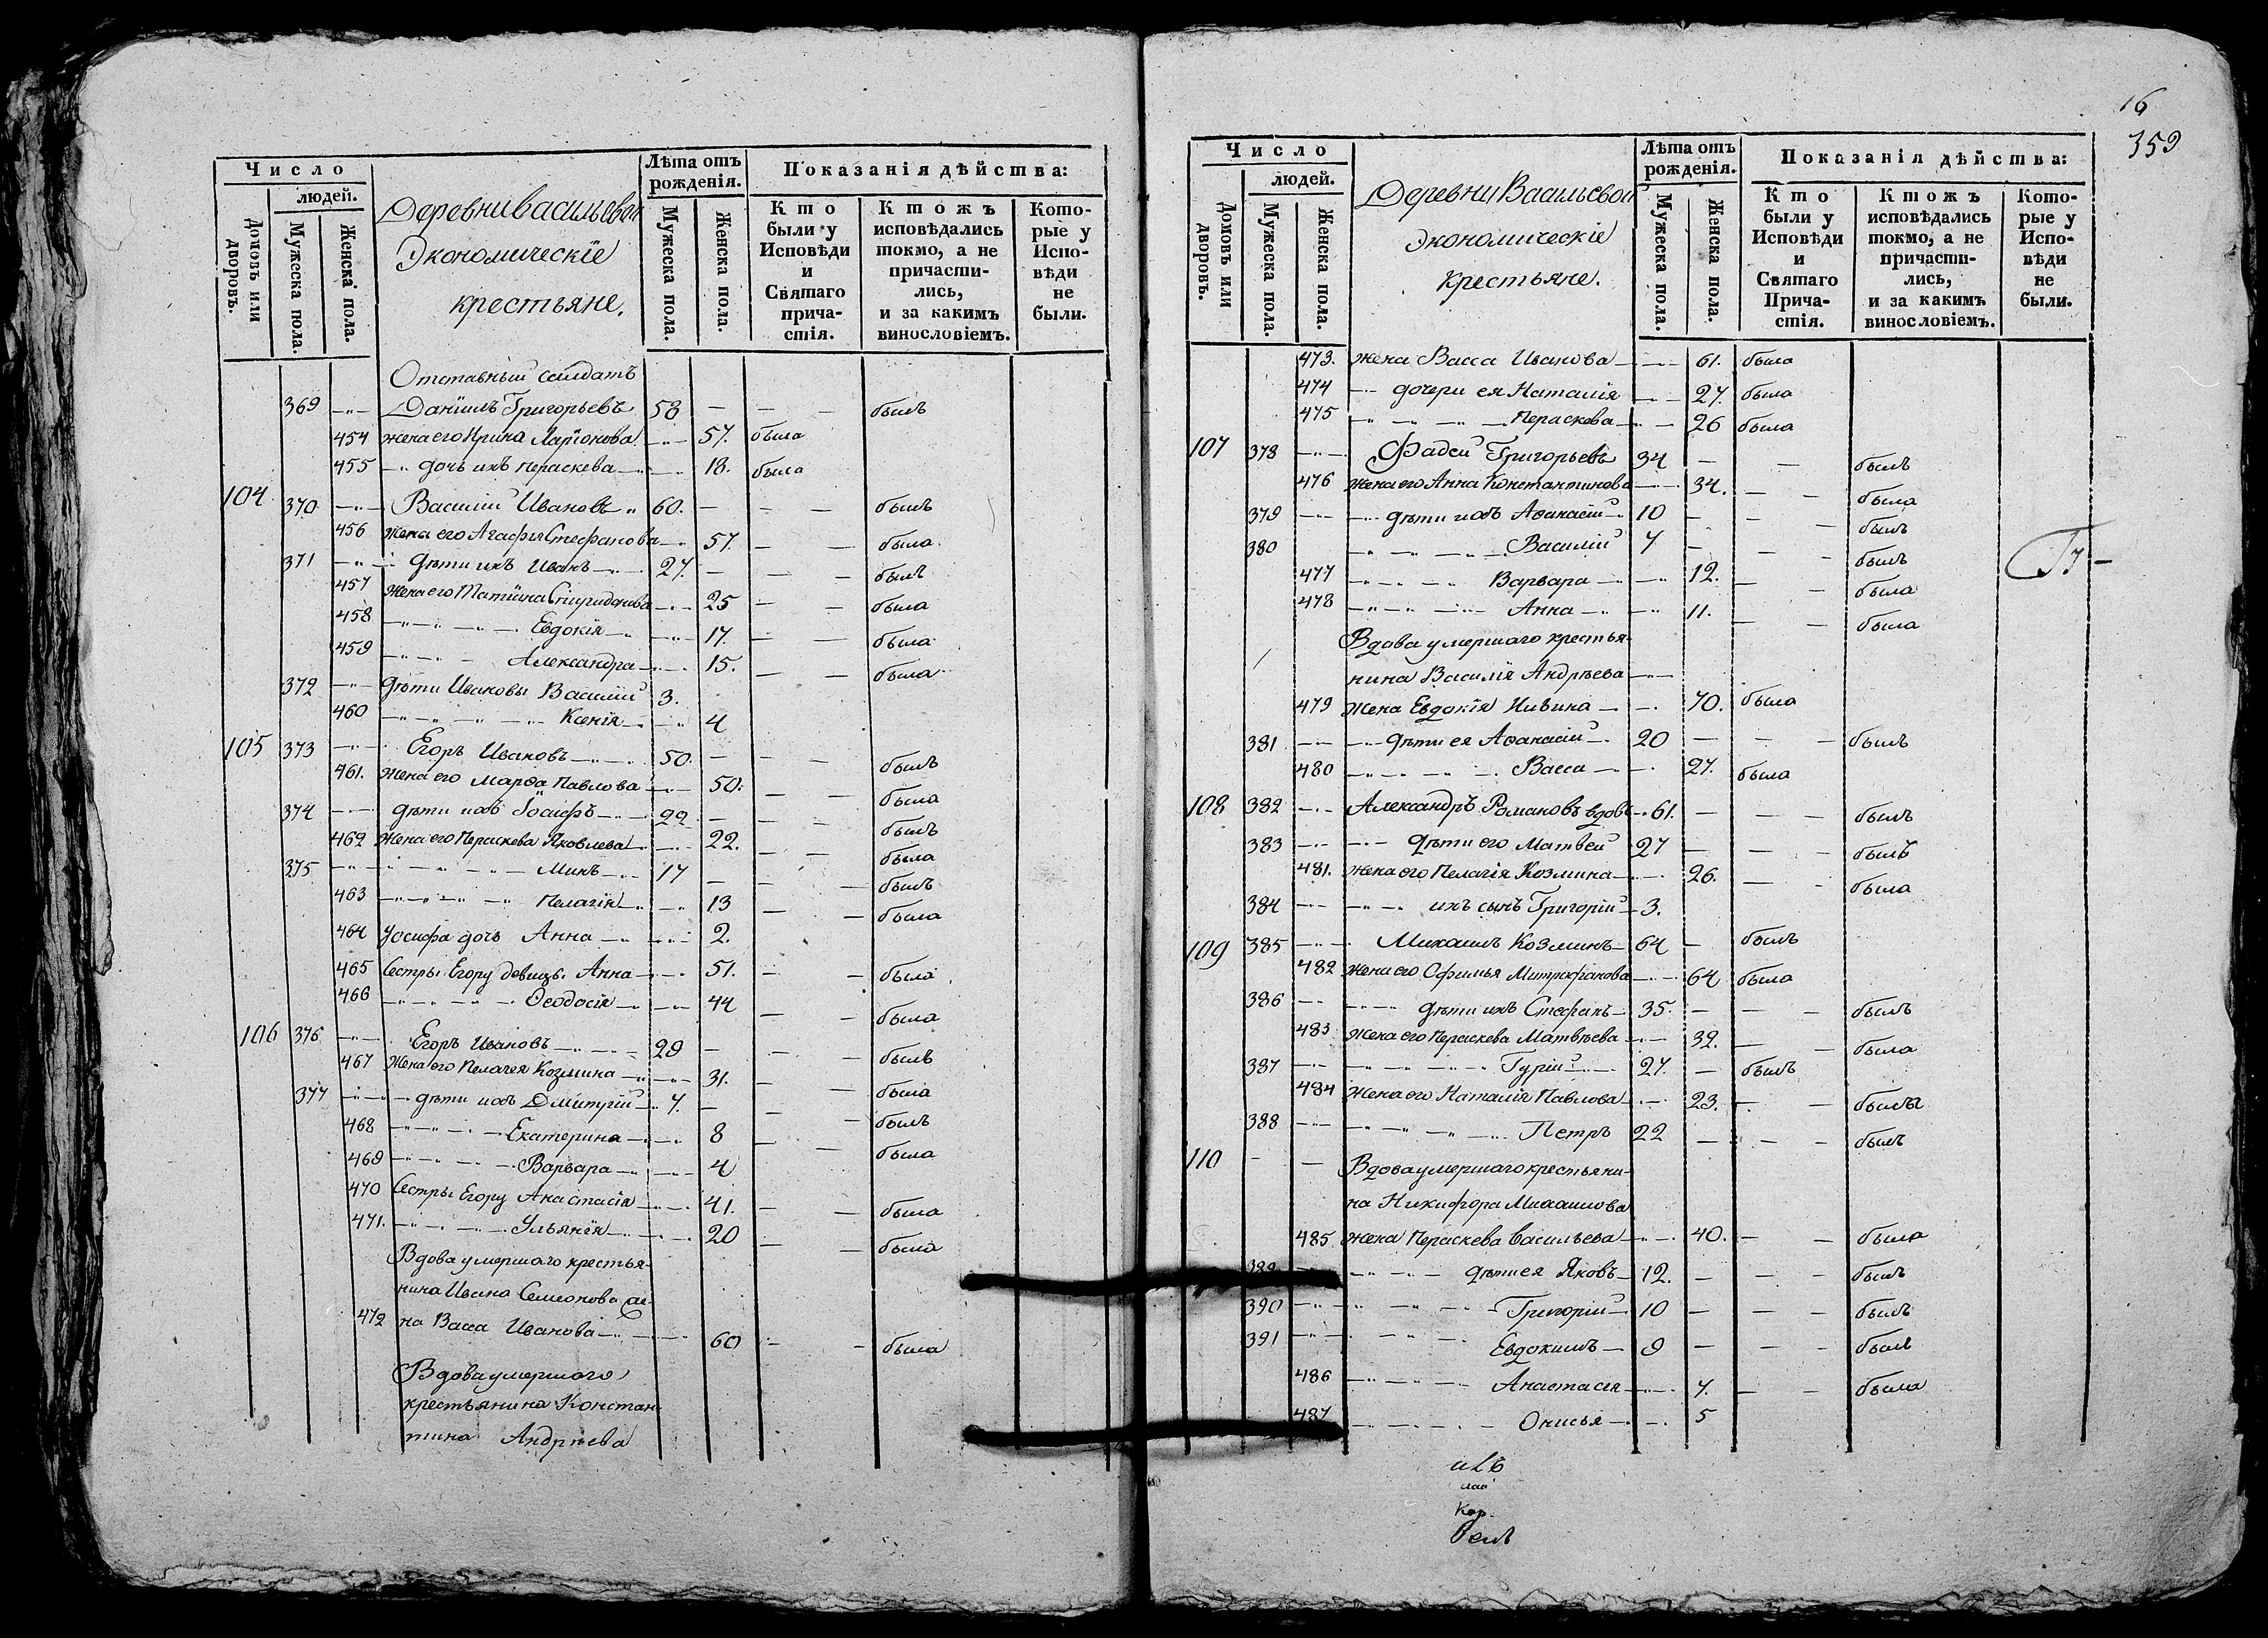 Число
людей.
Домовъ или дворовъ.
Мужеска пола.
Женска пола.
Деревни Васильевой
Экономическіе
крестьяне.
Лѣта отъ рожденія.
Мужеска пола.
Женска пола.
Показанія дѣйства:
Кто были у Исповѣди и Святаго причастія.
Ктожъ исповѣдались токмо, а не причастились, и за какимъ винословіемъ.
Которые у Исповѣди не были.
Отставный солдатъ
369 Данiилъ Григорьевъ 58 былъ
454 жена его Ирина Ларiонова 57. была
455 дочь ихъ Параскева 18. была
104 370 Василiй Ивановъ 60. былъ
456 жена его Агафiя Стефанова 57. была
371 дѣти ихъ Иванъ 27. былъ
457 жена его Татiана Спиридонова 25 была
458 Евдокiя 17. была
459 Александра 15. была
372 дѣти Ивановы Василiй 3.
460 Ксенiя 4
105 373 Егоръ Ивановъ 50. былъ
461. жена его Марѳа Павлова 50. была
374 дѣти ихъ Iосифъ 22 былъ
462 жена его Параскева Яковлева 22. была
375 Минъ 17 былъ
463 Пелагiя 13 была
464 Iосифа дочь Анна 2.
465 Сестры Егору девицы Анна 51. была
466 Ѳеодосiя 44 была
106 376 Егоръ Ивановъ 29 былъ
467 жена его Пелагея Козмина 31. была
377 дѣти ихъ Димитрiй 7. былъ
468 Екатерина 8 была
469 Варвара 4
470 Сестры Егору Анастасiя 41. была
471. Ульянiя 20 была
Вдова умершаго крестья-
нина Ивана Семионова же-
472 на Васса Иванова 60 была
Вдова умершаго
крестьянина Констан-
тина Андрѣева
16
359
Число
людей.
Домовъ или дворовъ.
Мужеска пола.
Женска пола.
Деревни Васильевой
Экономическіе
крестьяне.
Лѣта отъ рожденія.
Мужеска пола.
Женска пола.
Показанія дѣйства:
Кто были у Исповѣди и Святаго Причастія.
Ктожъ исповѣдались токмо, а не причастились, и за какимъ винословіемъ.
Которые у Исповѣди не были.
473. жена Васса Иванова 61. была
474 дочери ея Наталiя 27. была
475 Параскева 26 была
107 378 Фадей Григорьевъ 34 былъ
476 жена его Анна Константинова 34. была
379 дѣти ихъ Аѳанасiй 10 былъ
380 Василiй 7 былъ
477 Варвара 12. была
478 Анна 11. была
Вдова умершаго крестья-
нина Василiя Андрѣева
479 жена Евдокiя 70. была
381 дѣти ея Аѳанасiй 20 былъ
480 Васса 27. была
108 382 Александръ Романовъ вдовъ 61. былъ
383 дѣти его Матвей 27 былъ
481. жена его Пелагiя Козмина 26. была
384 ихъ сынъ Григорiй 3.
109 385 Михаилъ Козминъ 64 былъ
482 жена его Офимья Митрофанова 64 была
386 дѣти ихъ Стефанъ 35. былъ
483 жена его Параскева Матвѣева 32. была
387 Гурiй 27. былъ
484 жена его Наталiя Павлова 23. была
388 Петръ 22 былъ
110 Вдова умершаго крестьяни-
на Никифора Михаилова
485 жена Параскева Васильева 40. была
389 дѣти ея Яковъ 12. былъ
390 Григорiй 10 былъ
391 Евдокимъ 9 былъ
486 Анастасiя 7. была
487 Онисья 5